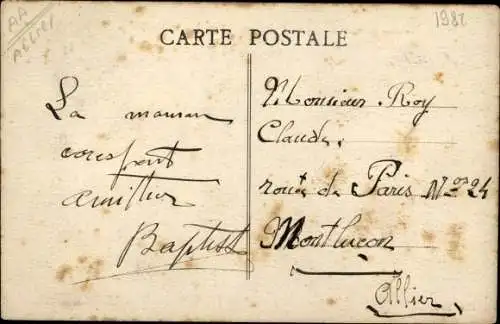 AA
ALLIER
1982
CARTE POSTALE
La maman
Baptist
Monsieur Roy
Claude.
route de Paris Nos 24
Montluçon
Allier